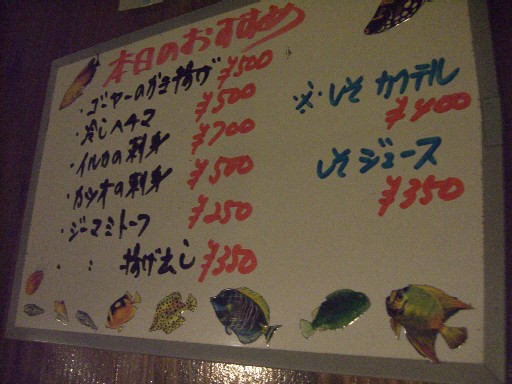 本日のおすすめ
・ゴーヤーのかき揚げ ¥500
・冷しヘチマ ¥500
・イルカの刺身 ¥700
・カツオの刺身 ¥500
・ジーマミトーフ ¥250
・ 〃 揚げ出し ¥350
※・しそカクテル
¥400
しそジュース
¥350